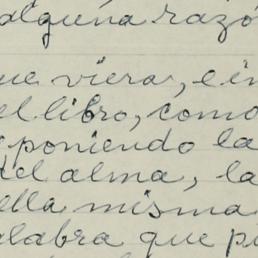 alguna razó
ue viera, e in
el libro, como
poniendo la
del alma, la
ella misma
alabra que pu